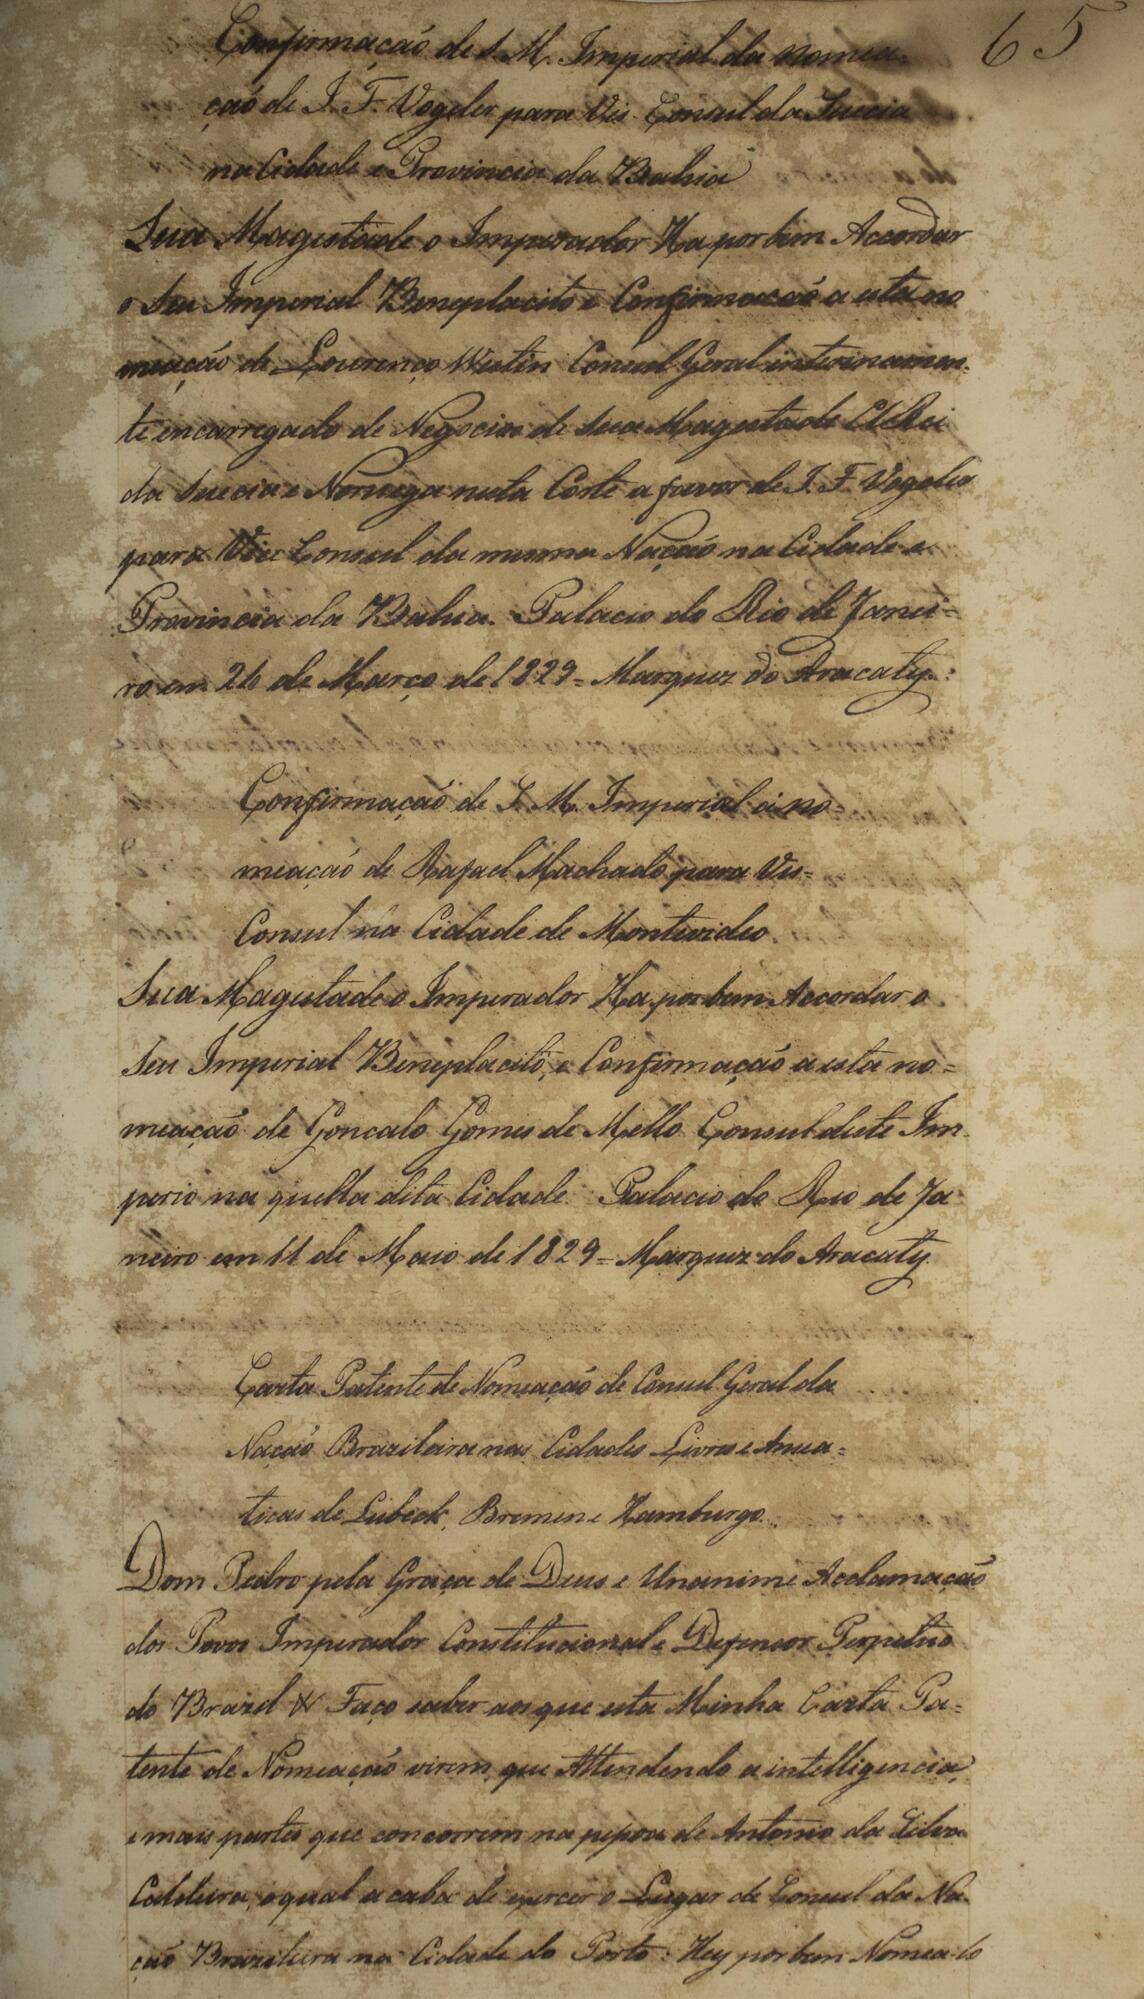 65
Confirmação de S. M. Imperial da nomea-
ção de J. F. Vogeler para Vis. Consul da Suecia
na Cidade e Provincia da Bahia
Sua Magestade o Imperador Ha por bem Accordar
o Seu Imperial Beneplacito e Confirmação a esta no
meação de Lourenço Westin Consul Geral interinamen-
te encarregado de Negocios de Sua Magestade ElRei
da Suecia e Noruega nesta Corte a favor de J. F. Vogeler
para Vice Consul da mesma Nação na Cidade e
Provincia da Bahia. Palacio do Rio de Janei-
ro em 26 de Março de 1829 = Marquez do Aracaty.
Confirmação de S. M. Imperial á no-
meação de Rafael Machado para Vis=
Consul na Cidade de Montevideo.
Sua Magestade o Imperador Ha por bem Accordar o
Seu Imperial Beneplacito, e Confirmação a esta no=
meação de Goncalo Gomes de Mello Consul deste Im-
perio na quella dita Cidade. Palacio do Rio de Ja-
neiro em 11 de Maio de 1829 = Marquez do Aracaty.
Carta Patente de Nomeação de Consul Geral da
Nação Brazileira nas Cidades Livres e Ansea=
ticas de Lubeck, Bremen e Hamburgo.
Dom Pedro pela Graça de Deus e Unanime Acclamação
dos Povos Imperador Constitucional e Defensor Perpetuo
do Brazil & Faço saber aos que esta Minha Carta Pa=
tente de Nomeação virem, que Attendendo a intelligencia,
e mais partes que concorrem na pessoa de Antonio da Silva
Caldeira, o qual acaba de exercer o Lugar de Consul da Na-
ção Brazileira na Cidade do Porto: Hey por bem Nomea-lo